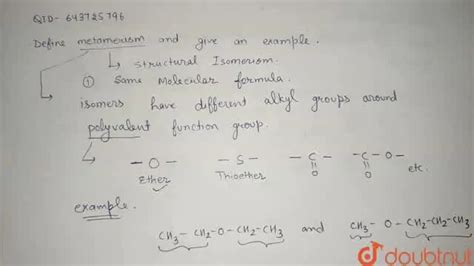 QID- 643725796
Define metamerism and give an example.
↳ structural Isomerism.
① Same Molecular formula.
isomers have different alkyl groups around
polyvalent function group.
-O- -S- -C- -C-O- etc.
O O
Ether Thioether
example.
CH3- CH2-O-CH2-CH3 and CH3-O-CH2-CH2-CH3
doubtnut